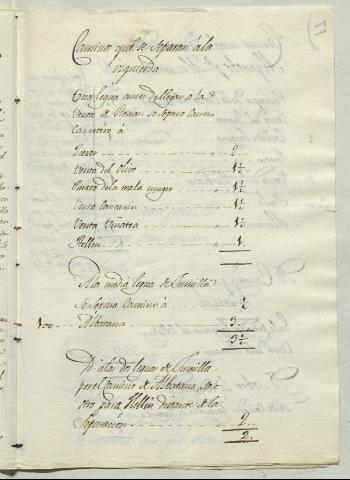 Caminos que se separan à la
izquierda
Una legua antes de llegar a la
Venta de Roman se separa camino
Carretero à
2
Venta del Olivo 1½
Puerto de la mala muger 1½
Venta 1½
Venta Viñatea 1½
Hellin 1
A la media legua de Jumilla
se separa camino à ½
100 Albatana 3
3½
A las dos leguas de Jumilla
por el camino de Albatana, sale
otro para Hellin distante de la
Separacion 2
2